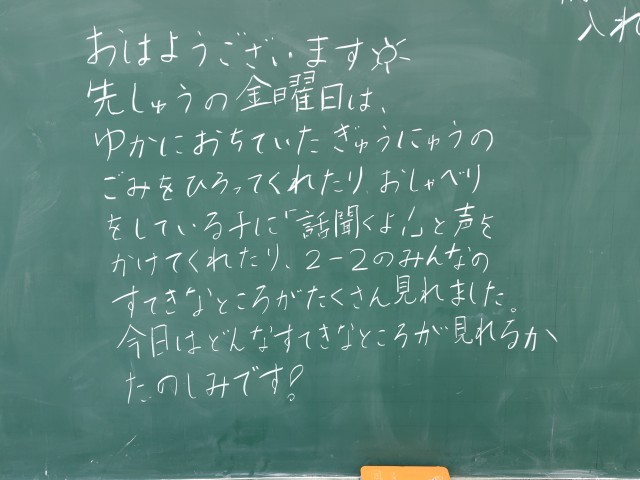 入れ
おはようございます
先しゅうの金曜日は、
ゆかにおちていたぎゅうにゅうの
ごみをひろってくれたり、おしゃべり
をしている子に「話聞くよ!」と声を
かけてくれたり、2-2のみんなの
すてきなところがたくさん見れました。
今日はどんなすてきなところが見れるか
たのしみです!